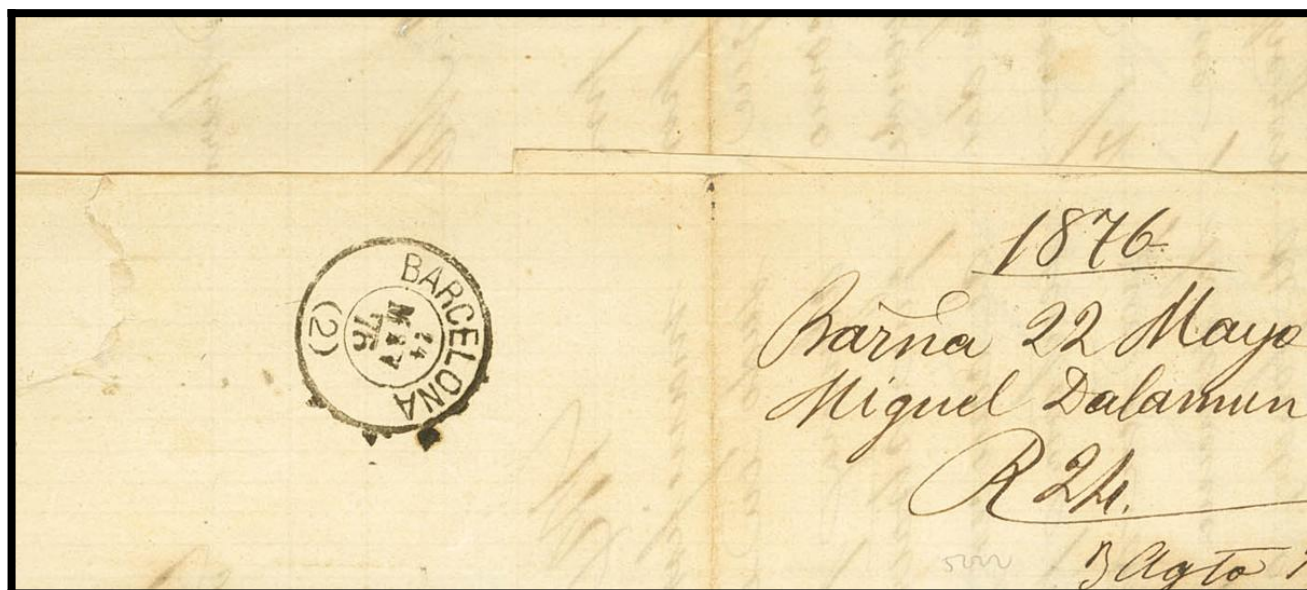 BARCELONA
24
MAY
76
(2)
1876
Barna 22 Mayo
Miguel Dalamun
R 24.
3 Agto